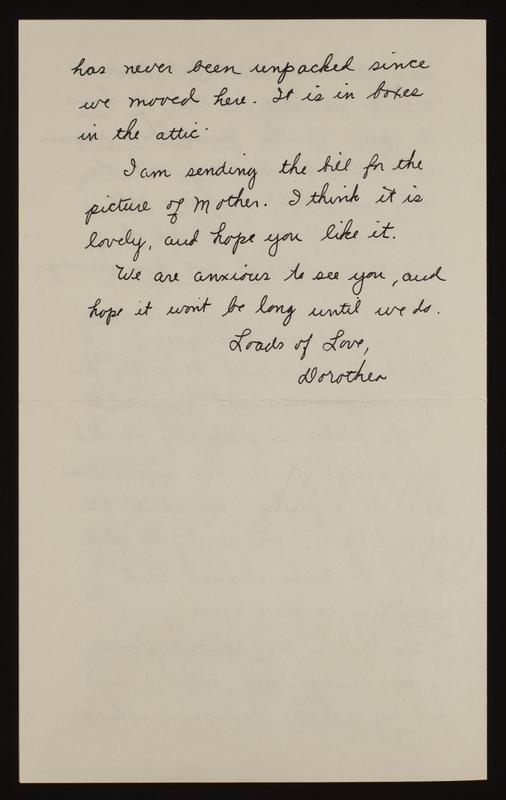 has never been unpacked since
we moved here. It is in boxes
in the attic.
I am sending the bill for the
picture of Mother. I think it is
lovely, and hope you like it.
We are anxious to see you, and
hope it won't be long until we do.
Loads of Love,
Dorothea